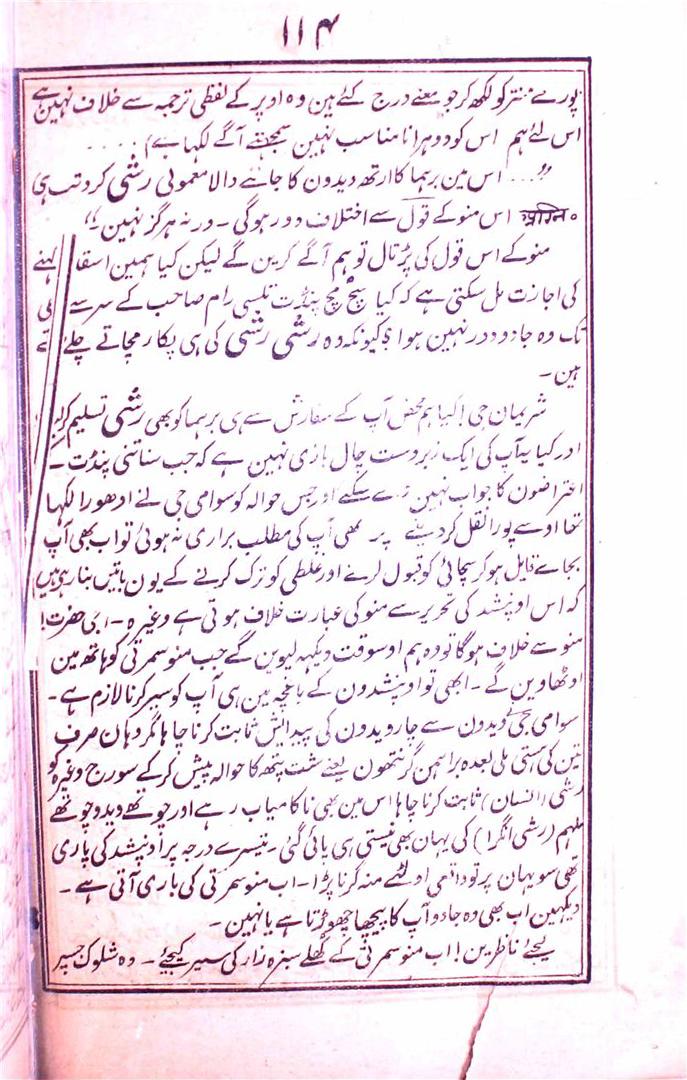 ۱۱۴
پورے منتر کو لکھ کر جو معنے درج کئے ہین وہ اوپر کے لفظی ترجمہ سے خلاف نہین ہے
اس لئے ہم اس کو دوہرانا مناسب نہین سمجہتے آگے لکھا ہے) ....
"... اس مین برہما کا ارتھ ویدون کا جاننے والا معمولی رشی کرو تب ہی
अग्नि॰ اس منو کے قول سے اختلاف دور ہوگی ۔ ورنہ ہرگز نہین"
منو کے اس قول کی پڑتال تو ہم آگے کرین گے لیکن کیا ہمین اسقا کہنے
کی اجازت مل سکتی ہے کہ کیا سچ مچ پنڈت تلسی رام صاحب کے سر سے
تک وہ جادو دور نہین ہوا؟ کیونکہ وہ رشی رشی کی ہی پکار مچاتے چلے
ہین ۔
شریمان جی! کیا ہم محض آپ کے سفارش سے ہی برہما کو بھی رشی تسلیم کرلین
اور کیا یہ آپ کی ایک زبردست چال بازی نہین ہے کہ جب سناتنی پنڈت ۔
اعتراضون کا جواب نہین دے سکے اور جس حوالہ کو سوامی جی نے ادھورا لکھا
تھا اوسے پورا نقل کر دینے پر بھی آپ کی مطلب براری نہ ہوئی تو اب بھی آپ
بجاے قایل ہوکر سچائی کو قبول کرنے اور غلطی کو ترک کرنے کے یون باتین بنا رہے ہین
کہ اس اوپنشد کی تحریر سے منو کی عبارت خلاف ہوتی ہے وغیرہ ۔ اجی حضرت!
منو سے خلاف ہوگا تو وہ ہم اوسوقت دیکہہ لیوین گے جب منوسمرتی کو ہاتھ مین
اوٹھاوین گے ۔ ابھی تو اوپنشدون کے باغیچہ مین ہی آپ کو سیر کرنا لازم ہے ۔
سوامی جی نے ویدون سے چار ویدون کی پیدائش ثابت کرنا چاہا مگر وہان صرف
تین کی ہستی ملی بعدہ براہمن گرنتھون یعنے شت پتھ کا حوالہ پیش کرکے سورج وغیرہ کو
رشی (انسان) ثابت کرنا چاہا اس مین بھی ناکامیاب رہے اور چوتھے وید و چوتھے
ملہم (رشی انگرا) کی یہان بھی نیستی ہی پائی گئی ۔ تیسرے درجہ پر اوپنشد کی پاری
تھی سو یہان پر تو واقعی اولٹے منہ گرنا پڑا ۔ اب منوسمرتی کی باری آتی ہے ۔
دیکہین اب بھی وہ جادو آپ کا پیچھا چھوڑتا ہے یا نہین ۔
لیجے ناظرین! اب منوسمرتی کے کھلے سبزہ زار کی سیر کیجئے ۔ وہ شلوک جسپر